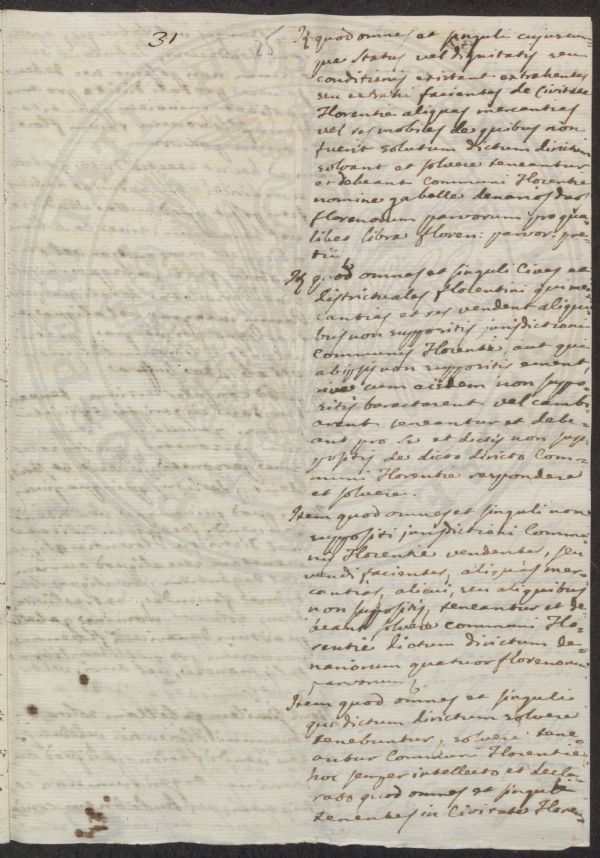 31
75
It quod omnes et singuli cujuscum-
que status vel dignitatis seu
conditionis existant extrahentes
seu extrahi facientes de Civitate
Florentie aliquas mercantias
vel res mobiles de quibus non
fuerit solutum dictum dirictum
solvant et solvere teneantur
et debeant Communi Florentie
nomine gabelle denarios duos
florenorum parvorum pro qua-
libet libra floren: parvor: pre-
tii
It quod omnes et singuli Cives et
districtuales florentini qui mer-
cantias et res vendent aliqui-
bus non suppositis jurisdictioni
Communis Florentie, aut qui
ab ipsis non suppositis ement,
sive cum eisdem non suppo-
sitis baractarent vel cambi-
arent teneantur et debe-
ant pro se et dictis non sup-
positis de dicto diricto Com-
muni Florentie respondere
et solvere.
Item quod omnes et singuli non
suppositi jurisdictioni Commu-
nis Florentie vendentes, seu
vendi facientes, aliquas mer-
cantias, alicui, seu aliquibus
non suppositis, teneantur et de-
beant solvere Communi Flo-
rentie dictum dirictum de-
nariorum quatuor florenorum
parvorum
Item quod omnes et singuli
qui dictum dirictum solvere
tenebuntur, solvere tene-
antur Communi Florentie
hoc semper intellecto et decla-
rato quod omnes et singuli
tenentes in Civitate Floren-